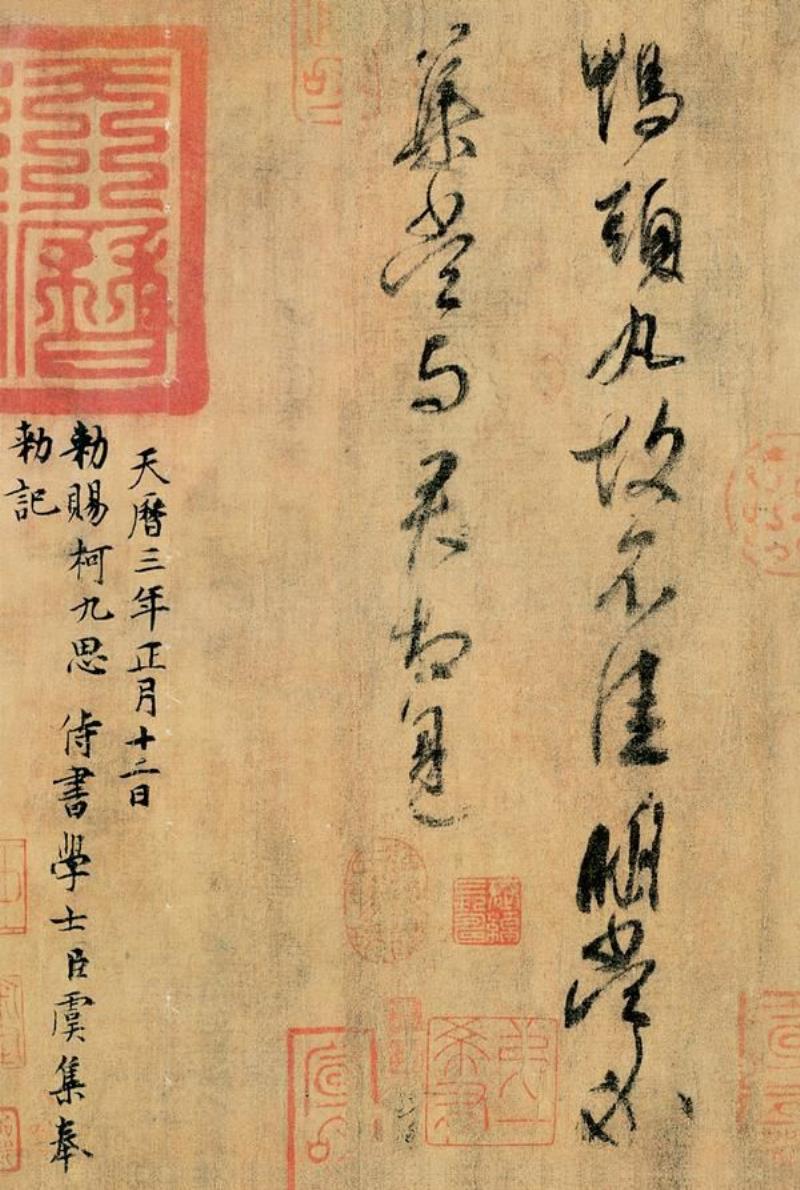 鴨頭丸故不佳明當必
集當與君相見
天曆三年正月十二日
勅賜柯九思侍書學士臣虞集奉
勅記